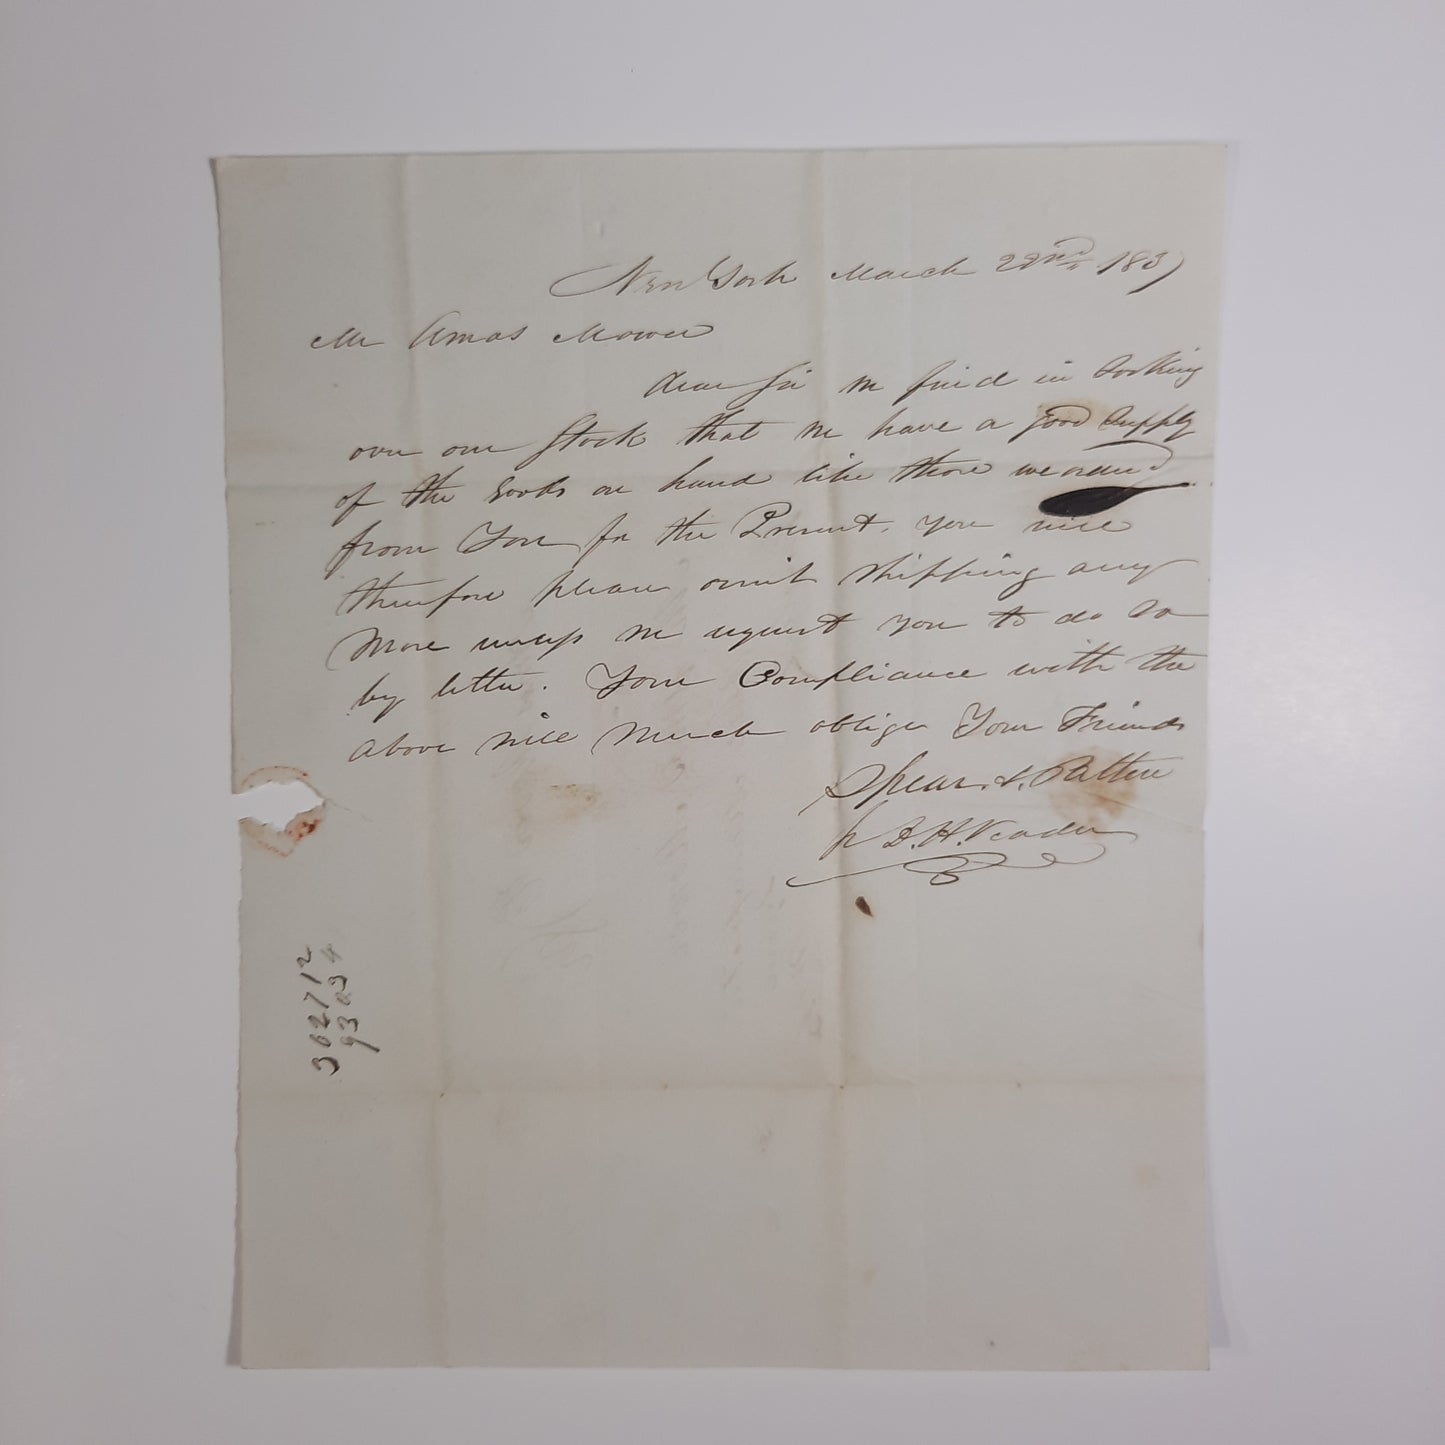 New York March 22nd 1837
Mr Amos Mower
Dear Sir we find in looking
over our Stock that we have a good supply
of the Goods on hand like those we ordered
from You for the Present, you will
therefore please omit shipping any
More unless we request you to do so
by letter. Your Compliance with the
above will Much oblige Your Friends
Spear & Patten
pr D. H. Veader
362712
93034